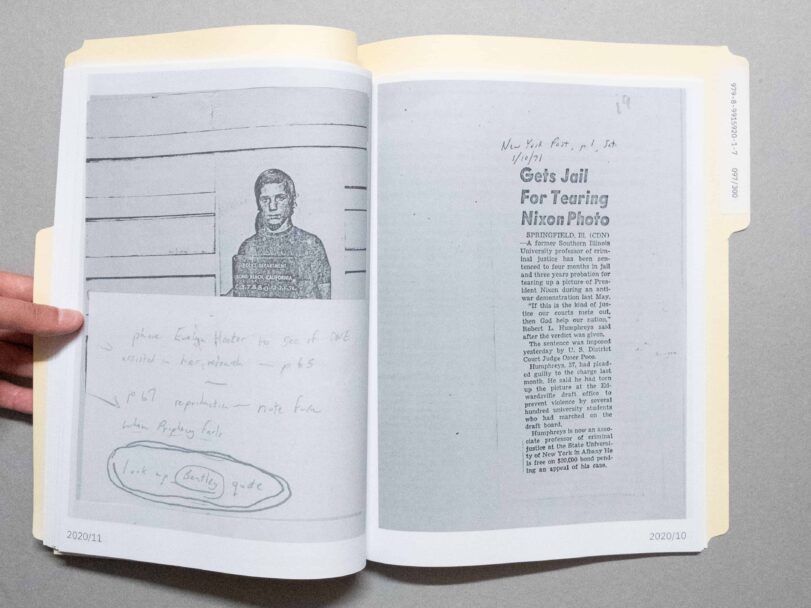 POLICE DEPARTMENT
phone Evelyn Hooker to see if
assisted in her research — p 65
p 67 reproduction — note from
When Prophecy Fails
look up Bentley quote
2020/11
19
New York Post, p. 1, Sat.
1/10/71
Gets Jail
For Tearing
Nixon Photo
SPRINGFIELD, Ill. (CDN)
—A former Southern Illinois
University professor of crim-
inal justice has been sen-
tenced to four months in jail
and three years probation for
tearing up a picture of Pres-
ident Nixon during an anti-
war demonstration last May.
"If this is the kind of jus-
tice our courts mete out,
then God help our nation,"
Robert L. Humphreys said
after the verdict was given.
The sentence was imposed
yesterday by U. S. District
Court Judge Omer Poos.
Humphreys, 37, had plead-
ed guilty to the charge last
month. He said he had torn
up the picture at the Ed-
wardsville draft office to
prevent violence by several
hundred university students
who had marched on the
draft board.
Humphreys is now an asso-
ciate professor of criminal
justice at the State Universi-
ty of New York in Albany He
is free on $20,000 bond pend-
ing an appeal of his case.
2020/10
979-8-9915920-1-7 097/300